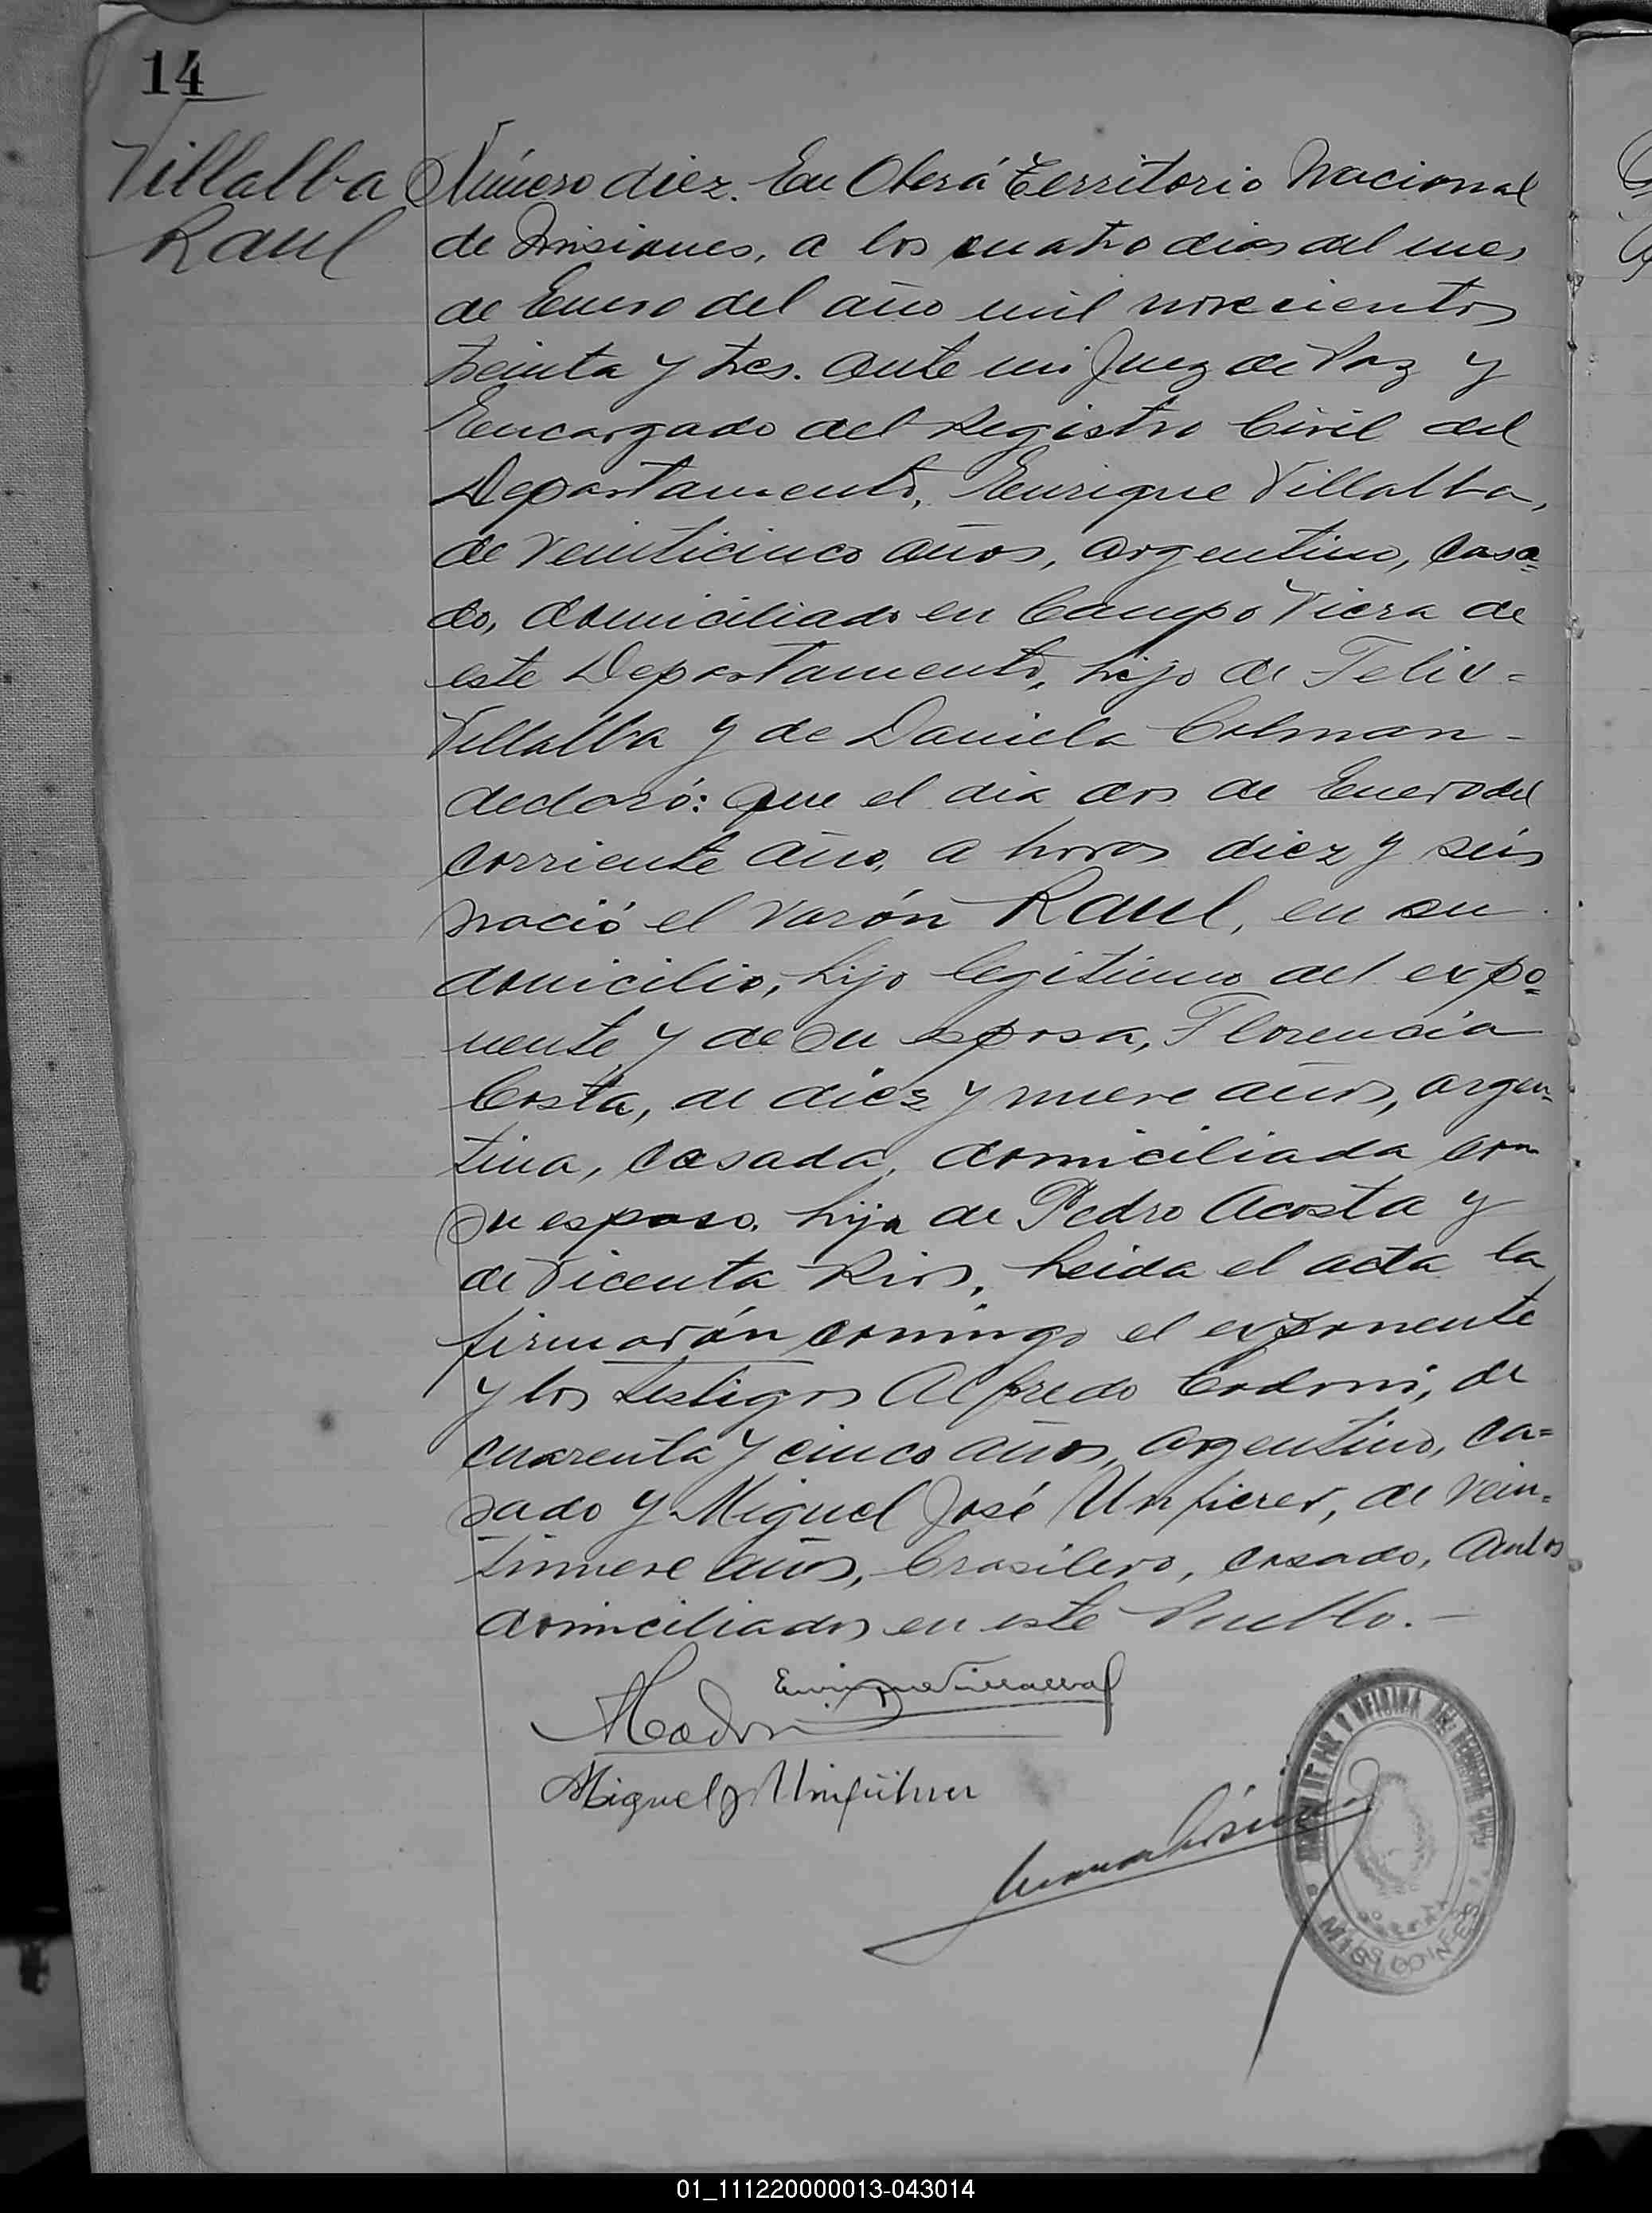 14
Villalba
Raul
Número diez. En Oberá Territorio Nacional
de Misiones, a los cuatro dias del mes
de Enero del año mil novecientos
treinta y tres. ante mi Juez de Paz y
Encargado del Registro Civil del
Departamento, Enrique Villalba,
de veinticinco años, argentino, casa=
do, domiciliado en Campo Viera de
este Departamento, hijo de Felix=
Villalba y de Daniela Colman-
declaró: que el dia dos de Enero del
corriente año, a horas diez y seis
nació el varón Raul, en su
domicilio, hijo legitimo del expo=
nente y de su esposa, Florencia
Costa, de diez y nueve años, argen=
tina, casada, domiciliada con
su esposo, hija de Pedro Acosta y
de Vicenta Rios, Leida el acta la
firmarán conmigo el exponente
y los testigos Alfredo Codoni, de
cuarenta y cinco años, argentino, ca=
sado y Miguel José Unfierer, de vein=
tinueve años, brasilero, casado, ambos
domiciliados en este Pueblo.-
Enrique Villalba
Miguel J
MISIONES
01_111220000013-043014